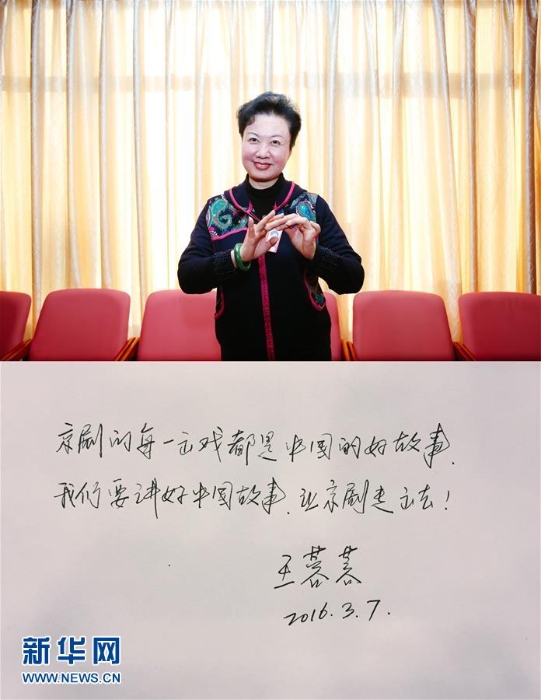 京剧的每一出戏都是中国的好故事.
我们要讲好中国故事.让京剧走出去!
王蓉蓉
2016.3.7.
新华网
WWW.NEWS.CN